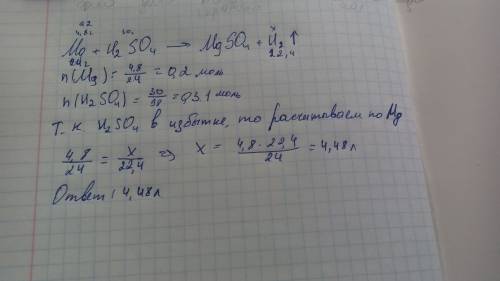 4,8г 30г x
Mg + H₂SO₄ → MgSO₄ + H₂↑
22,4
n(Mg) = 4,8/24 = 0,2 моль
n(H₂SO₄) = 30/98 = 0,31 моль
Т. к H₂SO₄ в избытке, то рассчитываем по Mg
4,8/24 = x/22,4 => x = 4,8 · 22,4/24 = 4,48 л
Ответ: 4,48 л